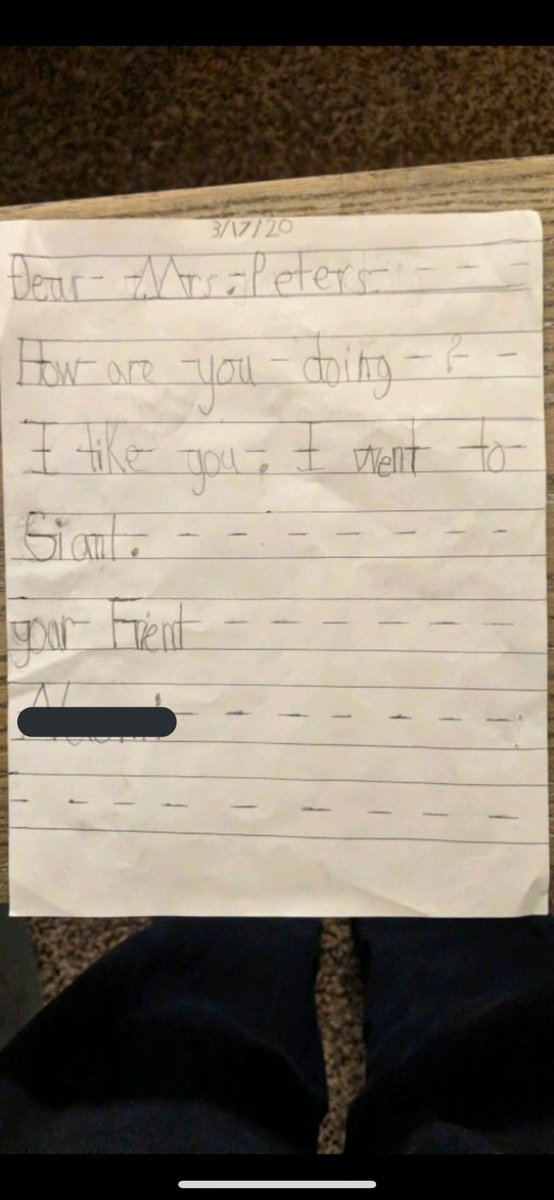 3/17/20
Dear Mrs. Peters
How are you doing?
I like you. I went to
Giant.
your Frient